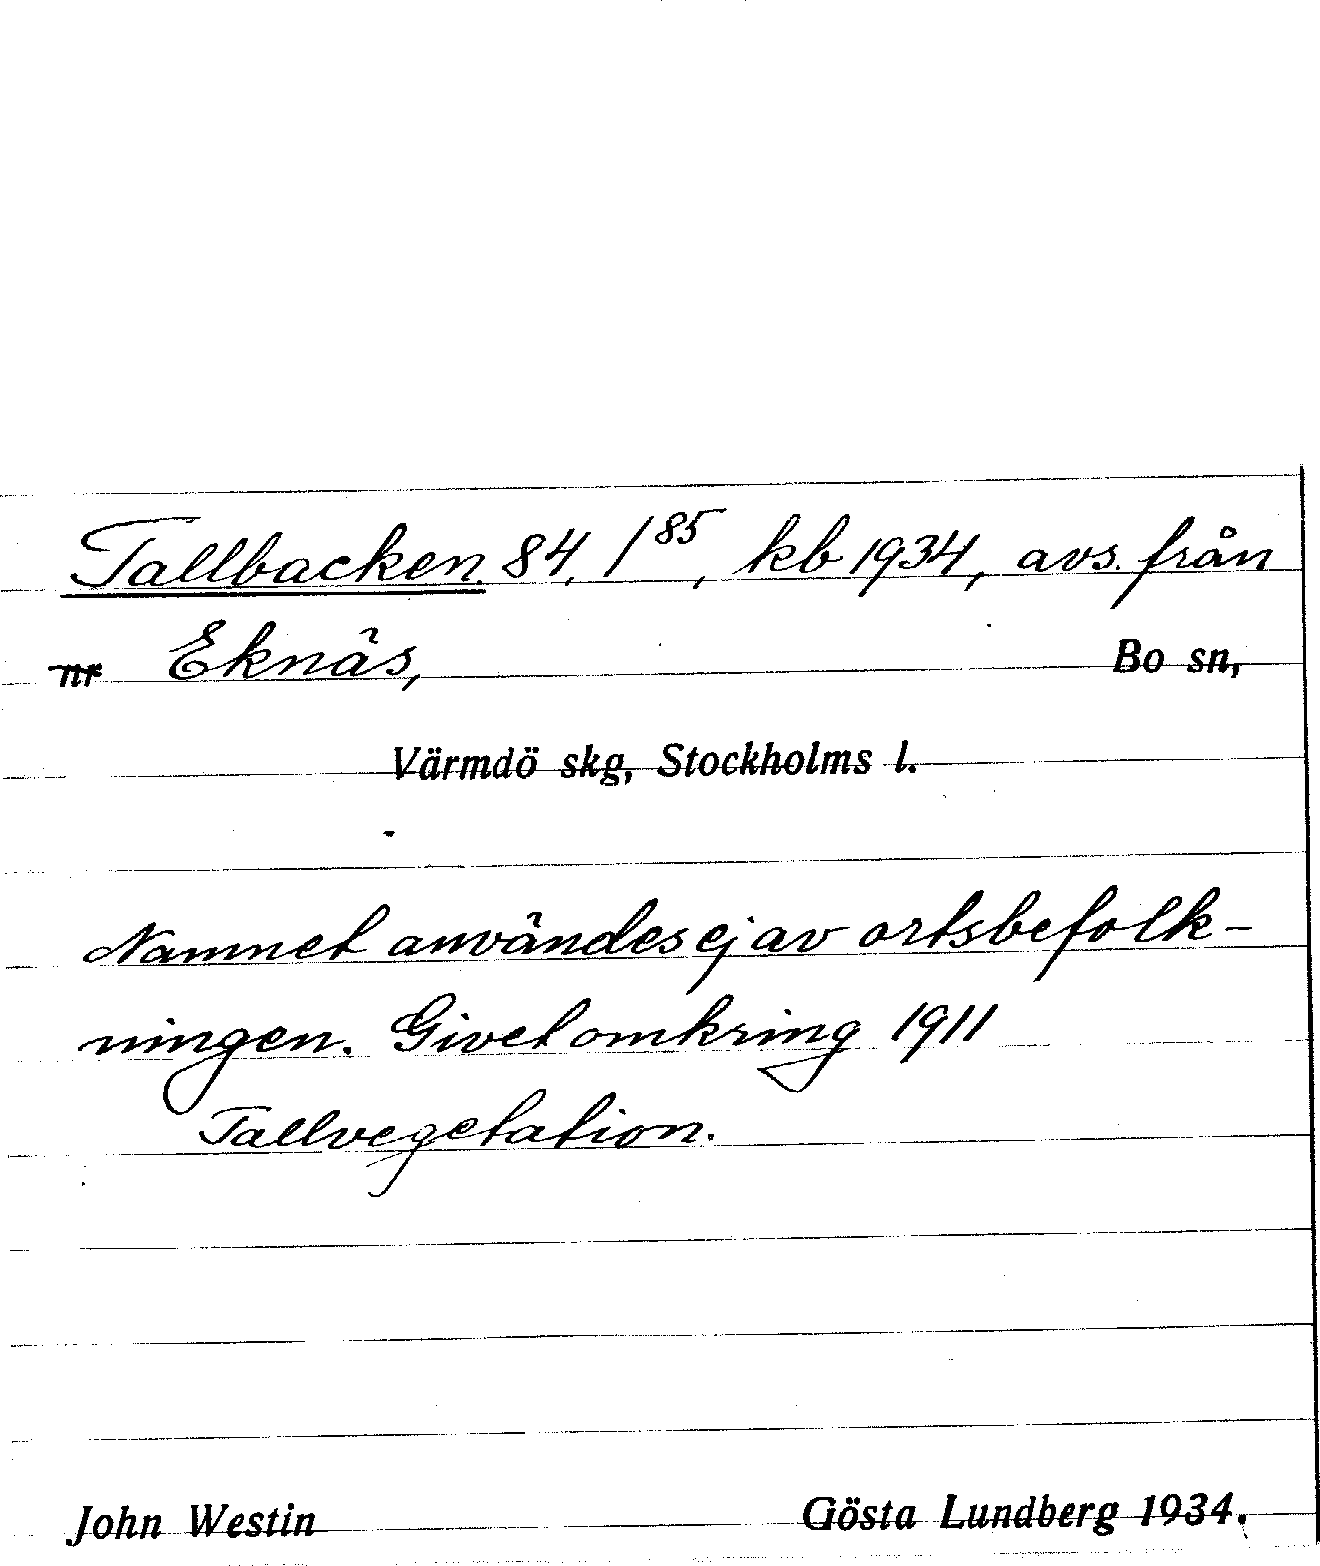 Tallbacken. 84, /85, kb 1934, avs. från
nr Eknäs, Bo sn,
Värmdö skg, Stockholms l.
Namnet användes ej av ortsbefolk-
ningen. Givet omkring 1911
Tallvegetation.
John Westin Gösta Lundberg 1934.